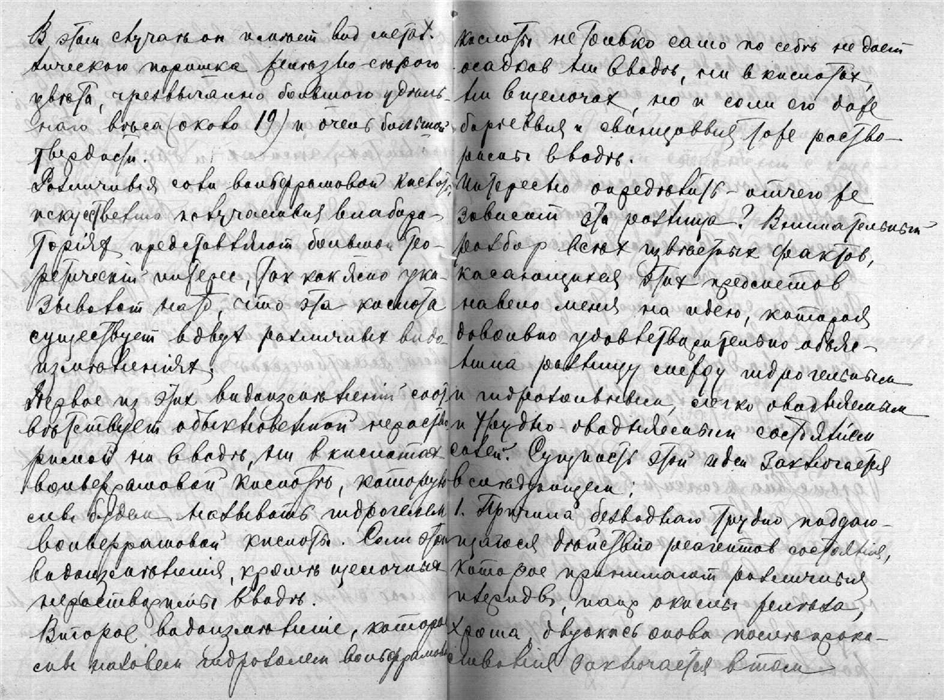 В этом случаѣ он имѣет вид метал.
лическаго порошка желѣзно-сѣраго
цвѣта, чрезвычайно большого удѣль
наго вѣса (около 19) и очень большой
твердости.
Различныя соли вольфрамовой кислоты,
искуственно получаемыя в лабора-
торіях представляют большой тео-
ретическій интерес, так как ясно ука
зывают на то, что эта кислота
существует в двух различных видо
измѣненіях.
Первое из этих видоизмѣненій соот
вѣтствует обыкновенной нераство
римой ни в водѣ, ни в кислотах
вольфрамовой кислотѣ, которую
мы будем называть гидрогелем
вольфрамовой кислоты. Соли этого
видоизмѣненія, кромѣ щелочных
нерастворимы в водѣ.
Второе видоизмѣненіе, которое
мы назовем гидрозолем вольфрамовой
кислоты не только само по себѣ не дает
осадков ни в водѣ, ни в кислотах,
ни в щелочах, но и соли его даже
баріевыя и свинцовыя тоже раство-
римы в водѣ.
Интересно опредѣлить отчего же
зависит эта разница? Внимательный
разбор всѣх извѣстных фактов,
касающихся этих предметов
навело меня на идею, которая
довольно удовлетворительно объяс-
нила разницу между гидрогельным
и гидрозольным, легко оводняемым
и трудно-оводняемым состояніем
солей. Сущность этой идеи заключается
в слѣдующем:
1. Причина безводнаго трудно поддаю-
щагося дѣйствію реагентов состоянія,
которое принимают различныя
гидраты, напр окиси желѣза,
хрома, двуокись олова послѣ прока-
ливанія заключается в том